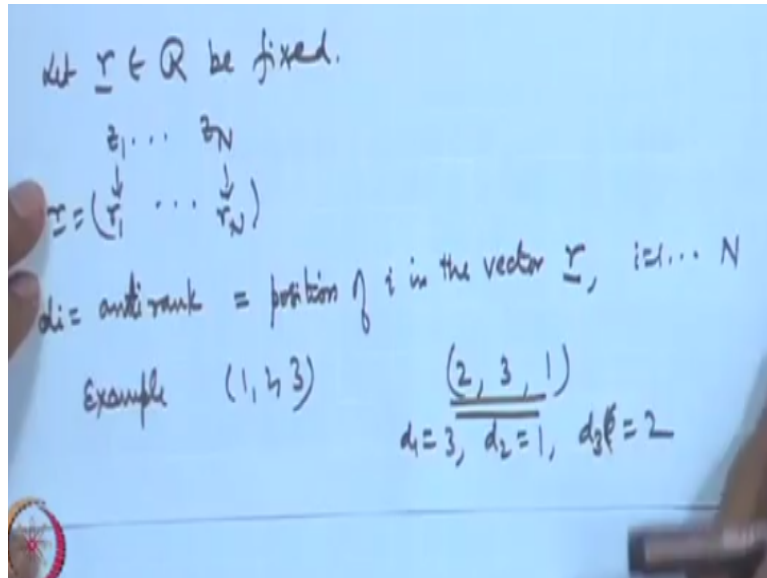 Let r ∈ R be fixed.
z₁ ... z_N
↓ ↓
r = (r₁ ... r_N)
dᵢ = anti rank = position of i in the vector r, i=1... N
Example (1, 2, 3) (2, 3, 1)
d₁ = 3, d₂ = 1, d₃ = 2